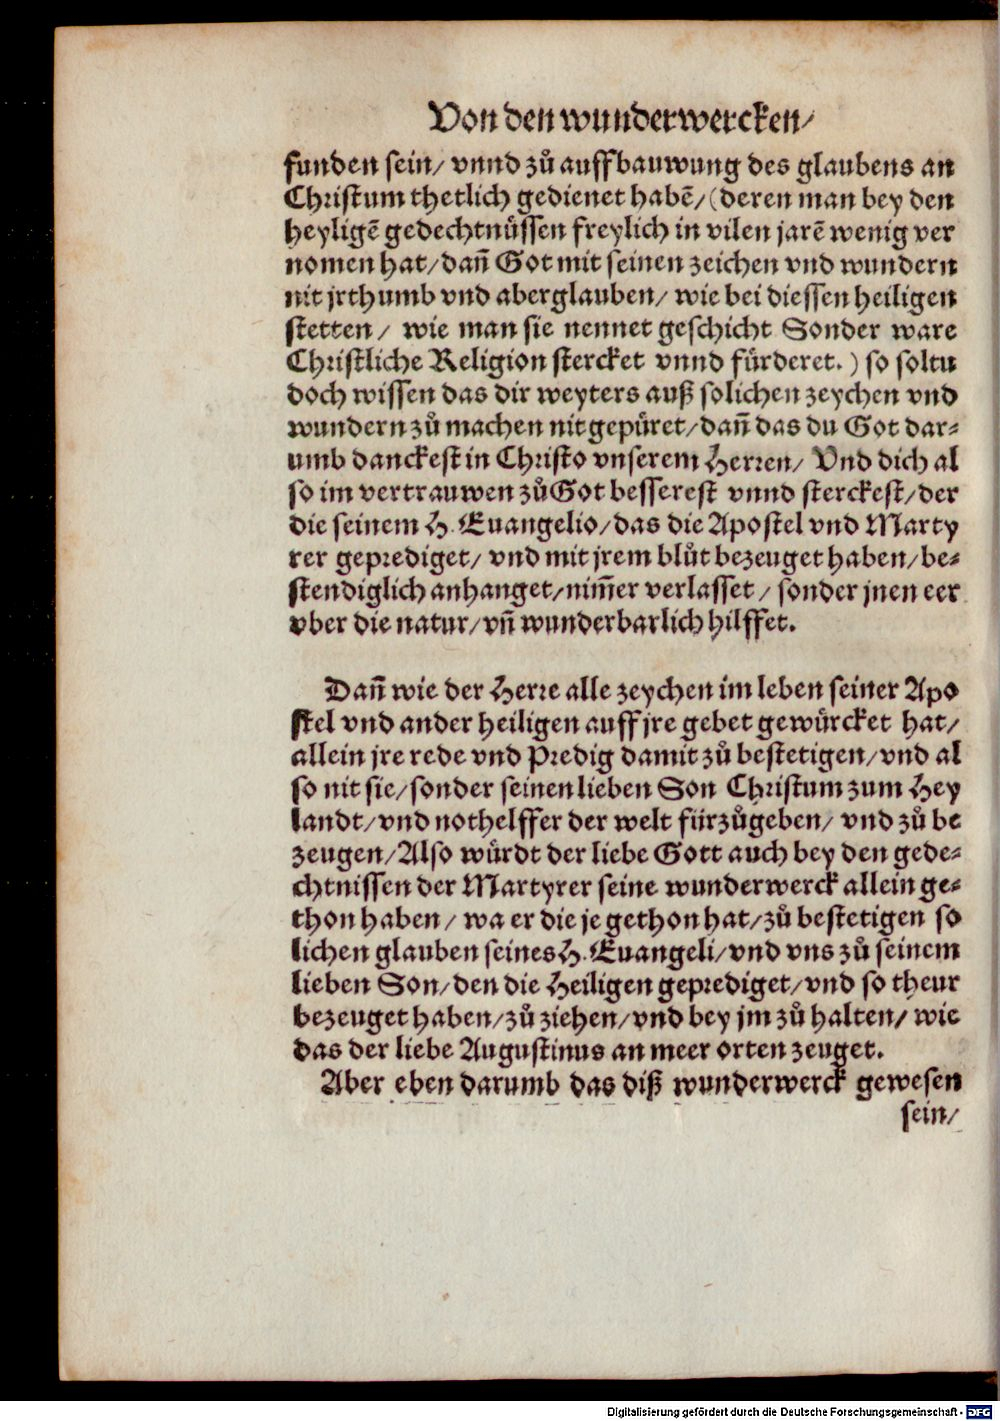 Von den wunderwercken/
funden sein/ vnnd zů auffbauwung des glaubens an
Christum thetlich gedienet habē/ (deren man bey den
heyligē gedechtnüssen freylich in vilen jarē wenig ver
nomen hat/ dañ Got mit seinen zeichen vnd wundern
nit jrthumb vnd aberglauben/ wie bei diessen heiligen
stetten/ wie man sie nennet geschicht Sonder ware
Christliche Religion stercket vnnd fürderet.) so soltu
doch wissen das dir weyters auß solichen zeychen vnd
wundern zů machen nit gepüret/ dañ das du Got dar⸗
umb danckest in Christo vnserem Herren/ Vnd dich al
so im vertrauwen zů Got besserest vnnd sterckest/ der
die seinem H. Euangelio/ das die Apostel vnd Marty
rer geprediget/ vnd mit jrem blůt bezeuget haben/ be⸗
stendiglich anhanget/ nim̄er verlasset/ sonder jnen eer
vber die natur/ vñ wunderbarlich hilffet.
Dañ wie der Herre alle zeychen im leben seiner Apo
stel vnd ander heiligen auff jre gebet gewürcket hat/
allein jre rede vnd Predig damit zů bestetigen/ vnd al
so nit sie/ sonder seinen lieben Son Christum zum Hey
landt/ vnd nothelffer der welt fürzůgeben/ vnd zů be
zeugen/ Also würdt der liebe Gott auch bey den gede⸗
chtnissen der Martyrer seine wunderwerck allein ge⸗
thon haben/ wa er die je gethon hat/ zů bestetigen so
lichen glauben seines H. Euangeli/ vnd vns zů seinem
lieben Son/ den die Heiligen geprediget/ vnd so theur
bezeuget haben/ zů ziehen/ vnd bey jm zů halten/ wie
das der liebe Augustinus an meer orten zeuget.
Aber eben darumb das diß wunderwerck gewesen
sein/
Digitalisierung gefördert durch die Deutsche Forschungsgemeinschaft - DFG